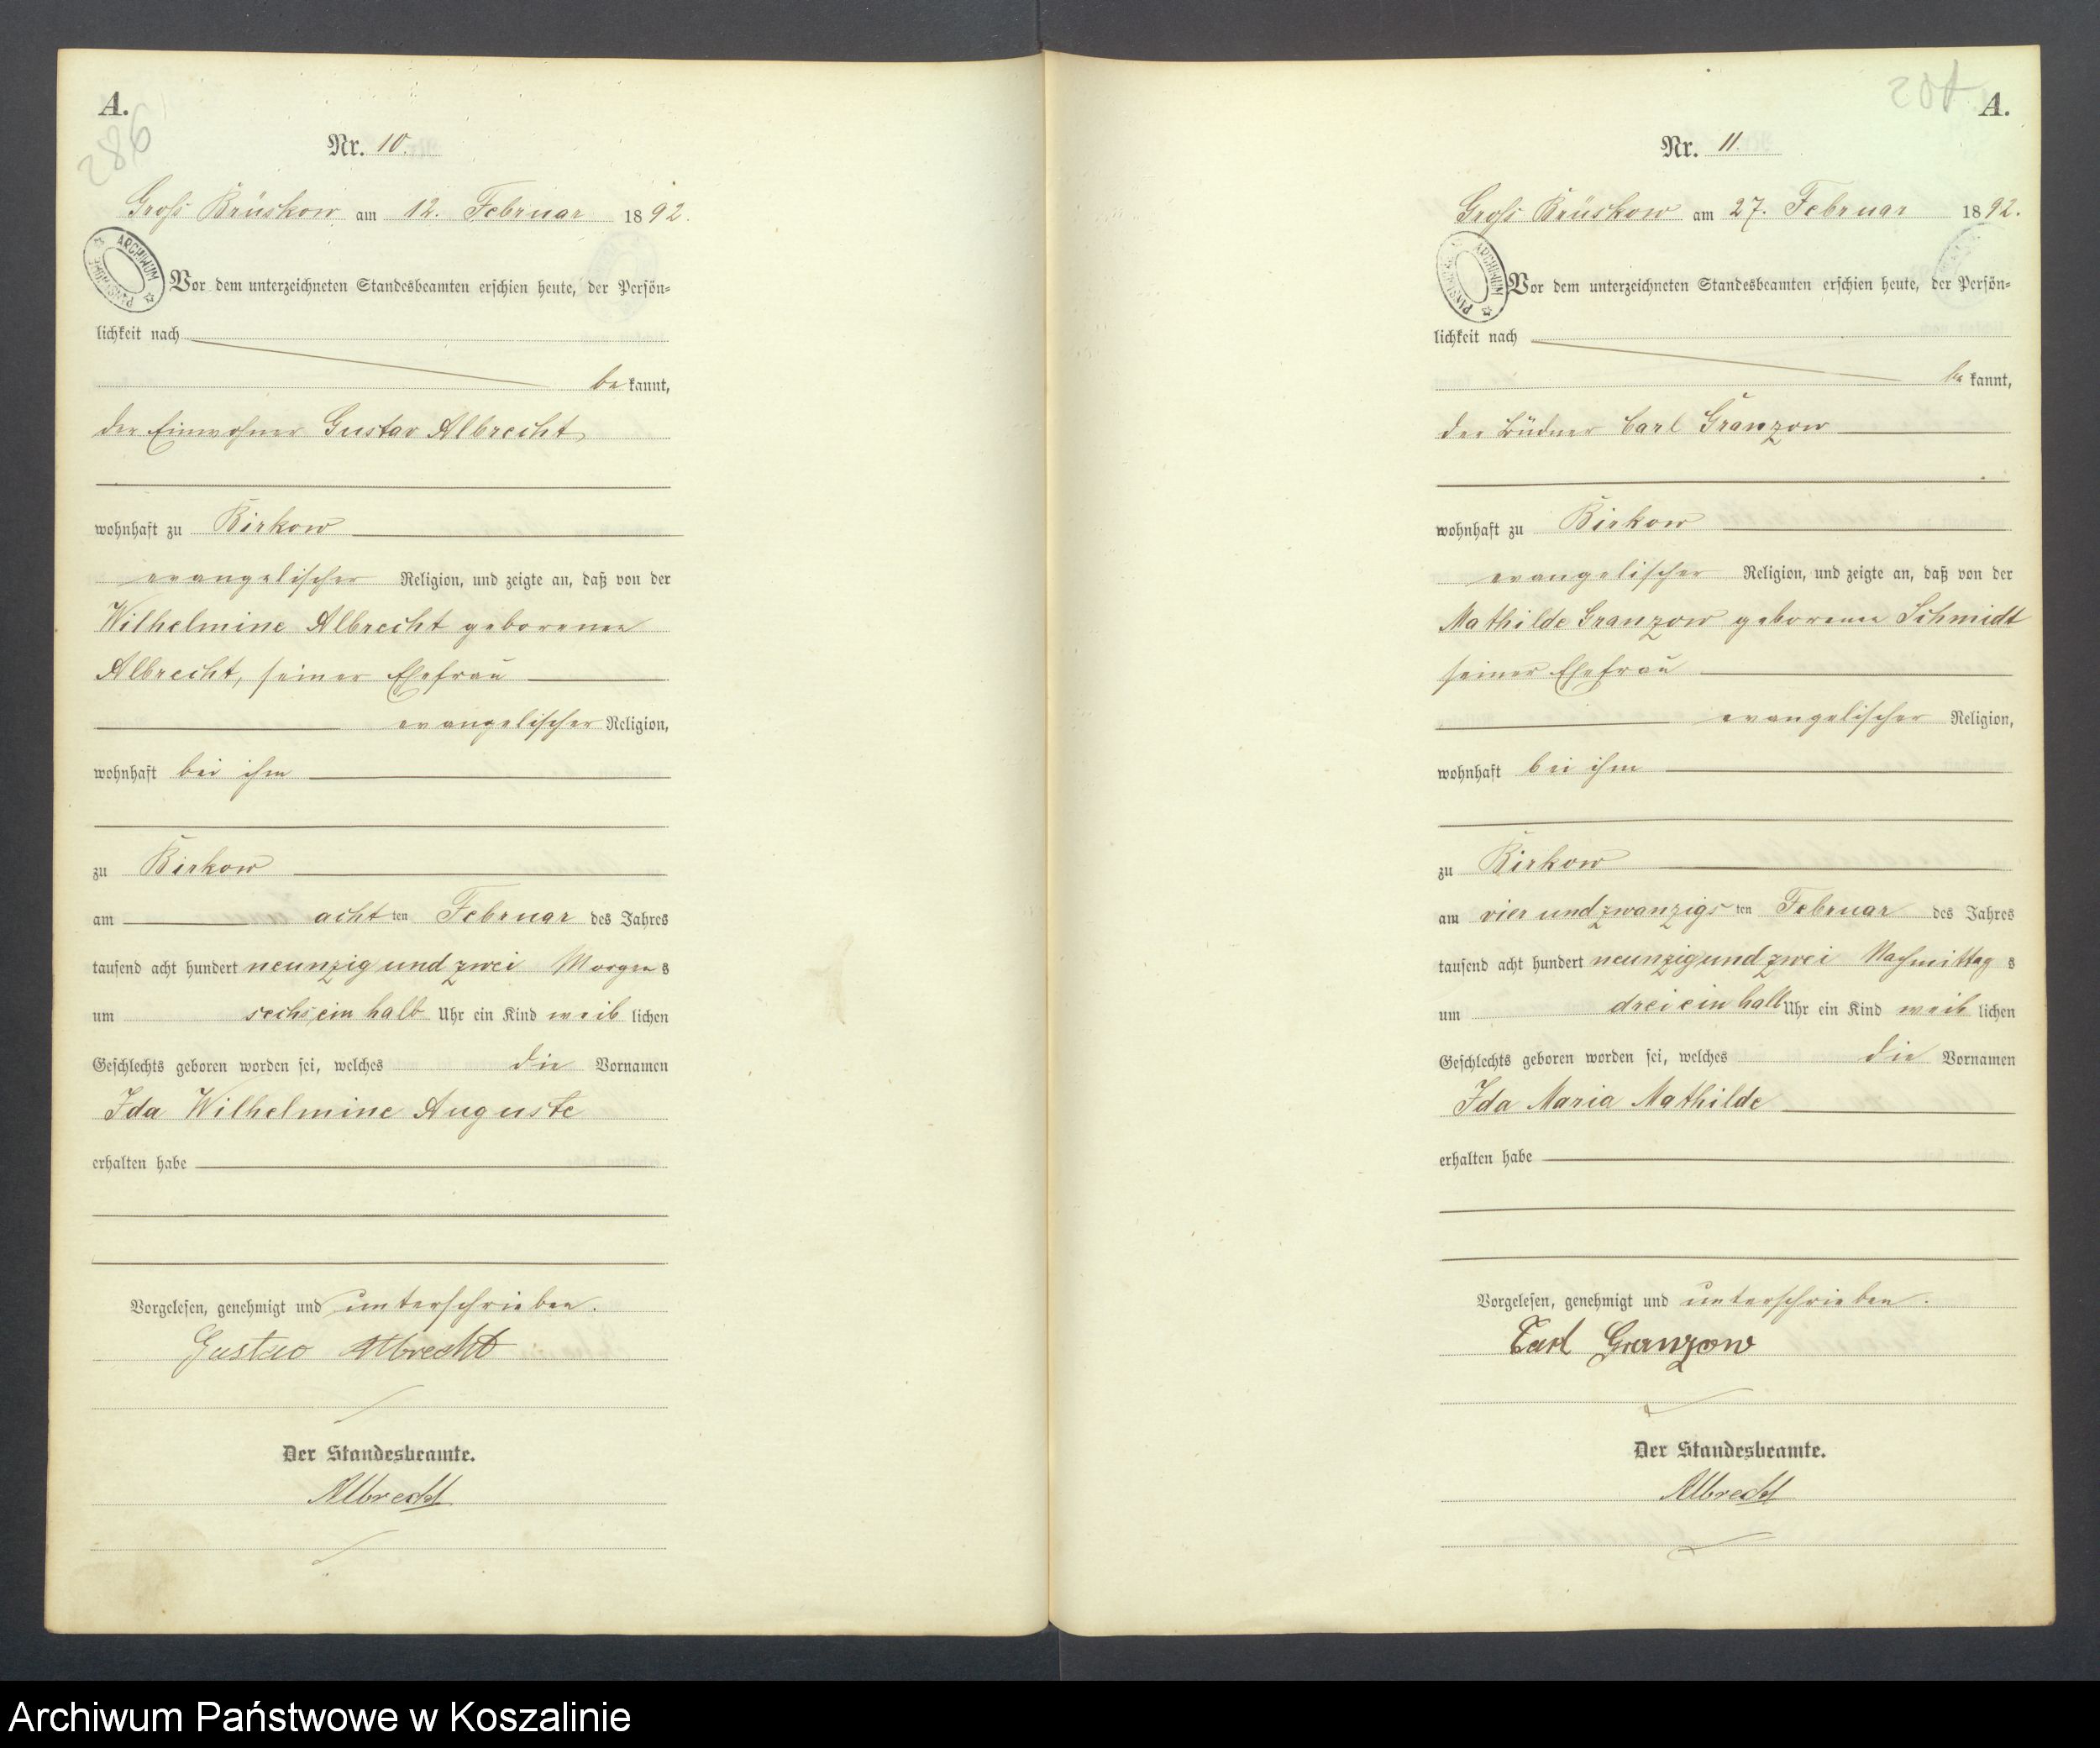 A.
286
Nr. 10.
Groß Brüskow am 12. Februar 1892.
ARCHIWUM PAŃSTWOWE
Vor dem unterzeichneten Standesbeamten erschien heute, der Persön-
lichkeit nach
bekannt,
der Einwohner Gustav Albrecht
wohnhaft zu Birkow
evangelischer Religion, und zeigte an, daß von der
Wilhelmine Albrecht geborenen
Albrecht, seiner Ehefrau
evangelischer Religion,
wohnhaft bei ihm
zu Birkow
am achtten Februar des Jahres
tausend acht hundert neunzig und zwei Morgens
um sechs ein halb Uhr ein Kind weiblichen
Geschlechts geboren worden sei, welches die Vornamen
Ida Wilhelmine Auguste
erhalten habe
Vorgelesen, genehmigt und unterschrieben.
Gustav Albrecht
Der Standesbeamte.
Albrecht
A.
Nr. 11.
Groß Brüskow am 27. Februar 1892.
ARCHIWUM PAŃSTWOWE
Vor dem unterzeichneten Standesbeamten erschien heute, der Persön-
lichkeit nach
bekannt,
der Büdner Carl Granzow
wohnhaft zu Birkow
evangelischer Religion, und zeigte an, daß von der
Mathilde Granzow geborenen Schmidt
seiner Ehefrau
evangelischer Religion,
wohnhaft bei ihm
zu Birkow
am vier und zwanzigsten Februar des Jahres
tausend acht hundert neunzig und zwei Nachmittags
um drei ein halb Uhr ein Kind weiblichen
Geschlechts geboren worden sei, welches die Vornamen
Ida Maria Mathilde
erhalten habe
Vorgelesen, genehmigt und unterschrieben.
Carl Granzow
Der Standesbeamte.
Albrecht
Archiwum Państwowe w Koszalinie